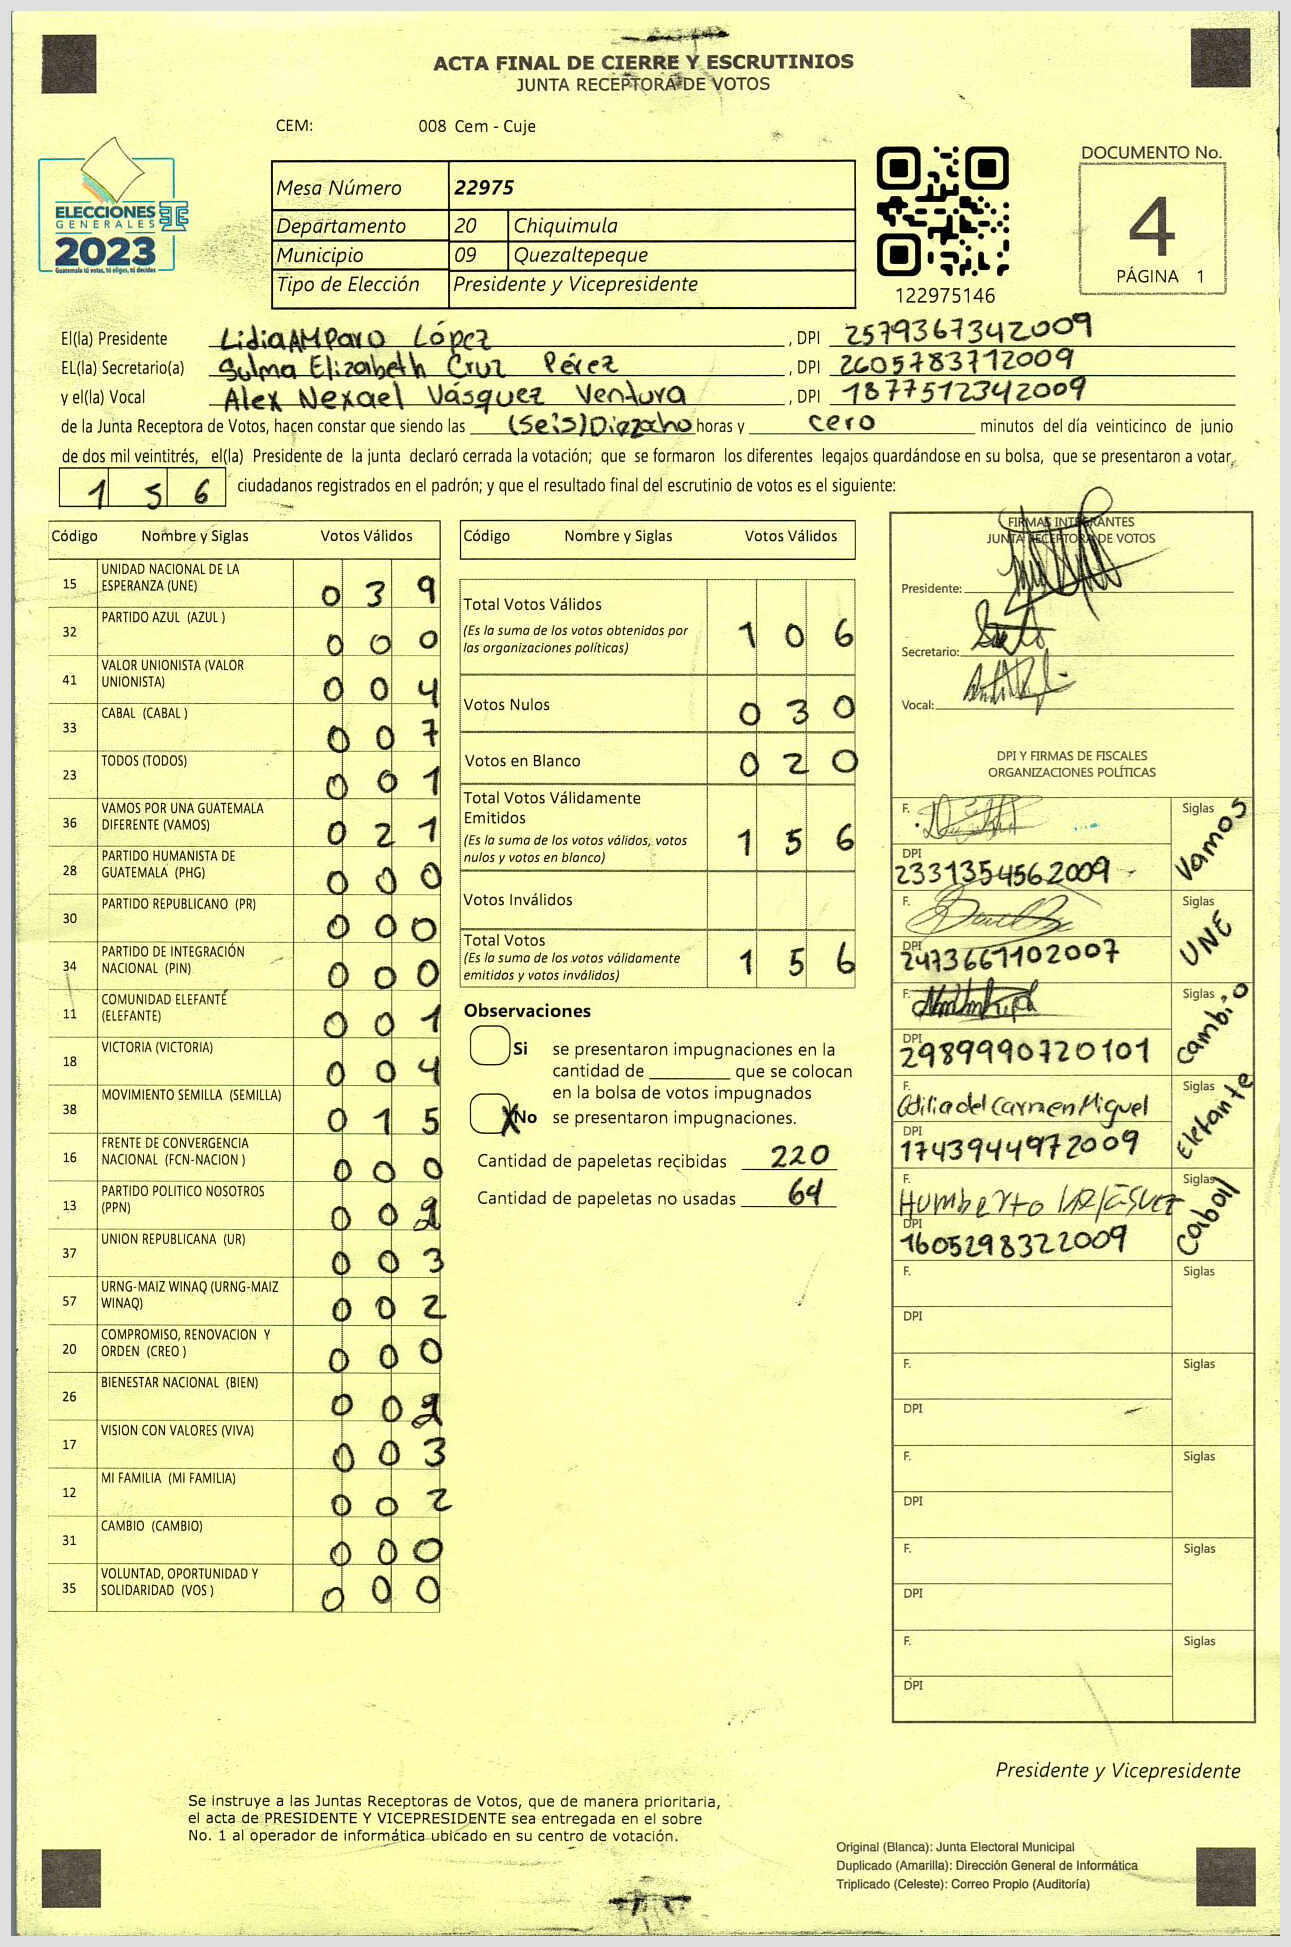 ACTA FINAL DE CIERRE Y ESCRUTINIOS
JUNTA RECEPTORA DE VOTOS
CEM: 008 Cem - Cuje
ELECCIONES
GENERALES
2023
Guatemala tú votas, tú eliges, tú decides
Mesa Número 22975
Departamento 20 Chiquimula
Municipio 09 Quezaltepeque
Tipo de Elección Presidente y Vicepresidente
122975146
DOCUMENTO No.
4
PÁGINA 1
El(la) Presidente Lidia AMParo López , DPI 2579367342009
EL(la) Secretario(a) Sulma Elizabeth Cruz Pérez , DPI 2605783712009
y el(la) Vocal Alex Nexael Vásquez Ventura , DPI 1877512342009
de la Junta Receptora de Votos, hacen constar que siendo las (seis) Diezocho horas y cero minutos del día veinticinco de junio
de dos mil veintitrés, el(la) Presidente de la junta declaró cerrada la votación; que se formaron los diferentes legajos guardándose en su bolsa, que se presentaron a votar,
1 5 6 ciudadanos registrados en el padrón; y que el resultado final del escrutinio de votos es el siguiente:
Código Nombre y Siglas Votos Válidos
15 UNIDAD NACIONAL DE LA
ESPERANZA (UNE) 0 3 9
32 PARTIDO AZUL (AZUL ) 0 0 0
41 VALOR UNIONISTA (VALOR
UNIONISTA) 0 0 4
33 CABAL (CABAL ) 0 0 7
23 TODOS (TODOS) 0 0 1
36 VAMOS POR UNA GUATEMALA
DIFERENTE (VAMOS) 0 2 1
28 PARTIDO HUMANISTA DE
GUATEMALA (PHG) 0 0 0
30 PARTIDO REPUBLICANO (PR) 0 0 0
34 PARTIDO DE INTEGRACIÓN
NACIONAL (PIN) 0 0 0
11 COMUNIDAD ELEFANTE
(ELEFANTE) 0 0 1
18 VICTORIA (VICTORIA) 0 0 4
38 MOVIMIENTO SEMILLA (SEMILLA) 0 1 5
16 FRENTE DE CONVERGENCIA
NACIONAL (FCN-NACION ) 0 0 0
13 PARTIDO POLITICO NOSOTROS
(PPN) 0 0 2
37 UNION REPUBLICANA (UR) 0 0 3
57 URNG-MAIZ WINAQ (URNG-MAIZ
WINAQ) 0 0 2
20 COMPROMISO, RENOVACION Y
ORDEN (CREO ) 0 0 0
26 BIENESTAR NACIONAL (BIEN) 0 0 2
17 VISION CON VALORES (VIVA) 0 0 3
12 MI FAMILIA (MI FAMILIA) 0 0 2
31 CAMBIO (CAMBIO) 0 0 0
35 VOLUNTAD, OPORTUNIDAD Y
SOLIDARIDAD (VOS ) 0 0 0
Código Nombre y Siglas Votos Válidos
Total Votos Válidos 1 0 6
(Es la suma de los votos obtenidos por
las organizaciones políticas)
Votos Nulos 0 3 0
Votos en Blanco 0 2 0
Total Votos Válidamente
Emitidos 1 5 6
(Es la suma de los votos válidos, votos
nulos y votos en blanco)
Votos Inválidos
Total Votos 1 5 6
(Es la suma de los votos válidamente
emitidos y votos inválidos)
Observaciones
Si se presentaron impugnaciones en la
cantidad de ________ que se colocan
en la bolsa de votos impugnados
X No se presentaron impugnaciones.
Cantidad de papeletas recibidas 220
Cantidad de papeletas no usadas 64
FIRMAS INTEGRANTES
JUNTA RECEPTORA DE VOTOS
Presidente:
Secretario:
Vocal:
DPI Y FIRMAS DE FISCALES
ORGANIZACIONES POLÍTICAS
F. Siglas Vamos
DPI 2331354562009
F. Siglas UNE
DPI 2473661102007
F. Siglas Cambio
DPI 2989990720101
F. Odilia del Carmen Miguel Siglas Elefante
DPI 1743944972009
F. Humberto Siglas Caball
DPI 1605298322009
F. Siglas
DPI
F. Siglas
DPI
F. Siglas
DPI
F. Siglas
DPI
F. Siglas
DPI
Presidente y Vicepresidente
Se instruye a las Juntas Receptoras de Votos, que de manera prioritaria,
el acta de PRESIDENTE Y VICEPRESIDENTE sea entregada en el sobre
No. 1 al operador de informática ubicado en su centro de votación.
Original (Blanca): Junta Electoral Municipal
Duplicado (Amarilla): Dirección General de Informática
Triplicado (Celeste): Correo Propio (Auditoría)